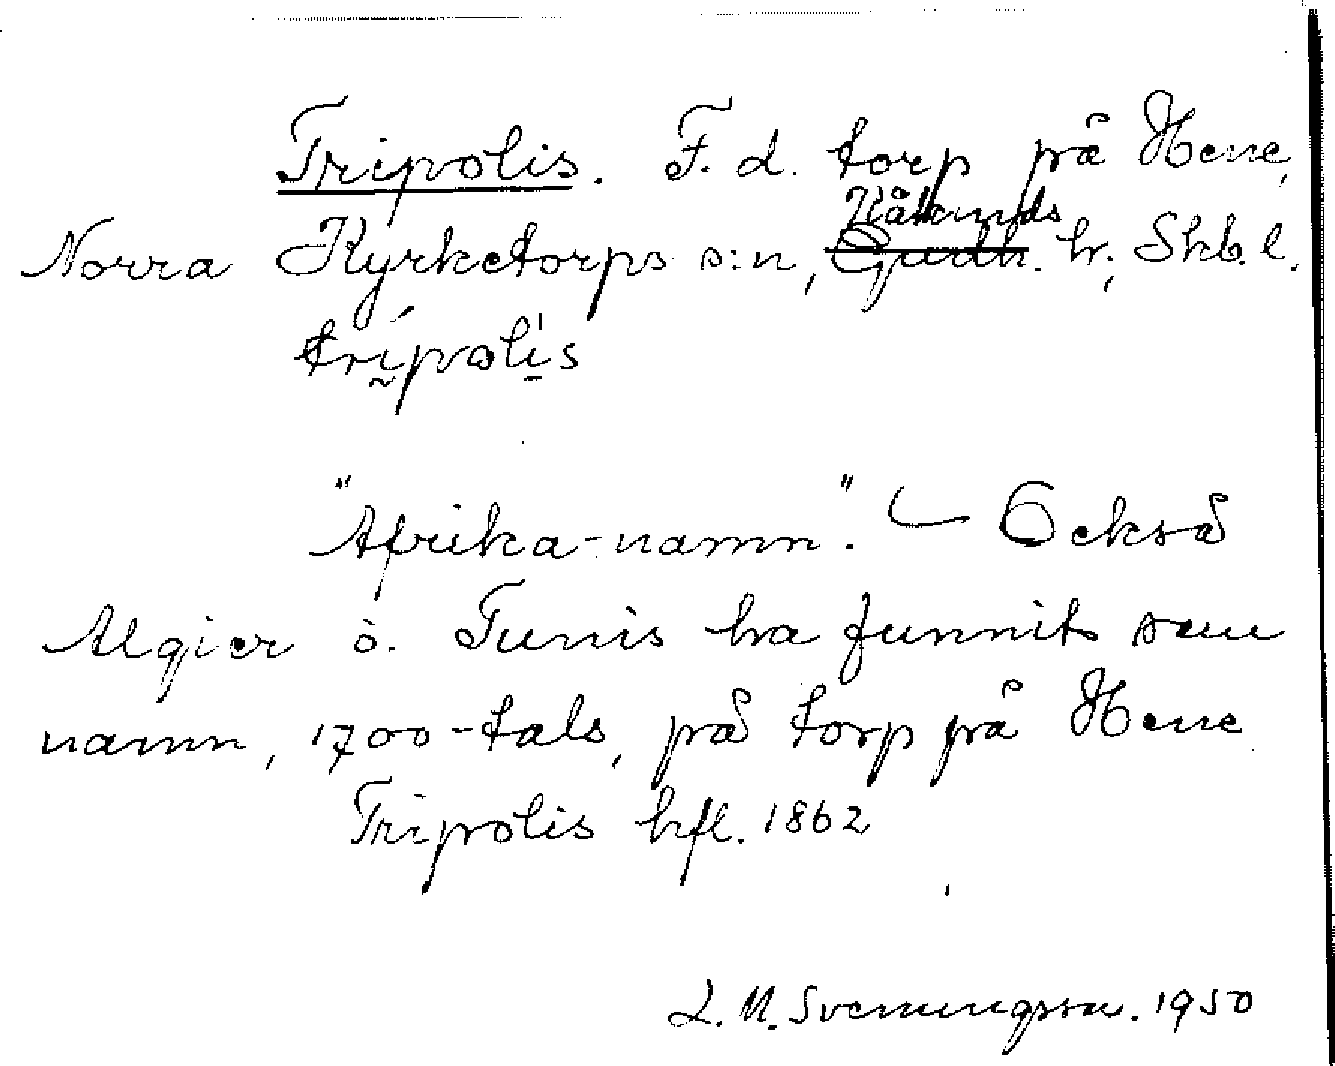 Tripolis. F. d. torp på Hene,
Norra Kyrketorps s:n, Kåkinds hr., Skb. l.
trípolìs
"Afrika-namn". — Också
Algier o. Tunis ha funnits som
namn, 1700-tals, på torp på Hene
Tripolis hfl. 1862
L. M. Svenungsson. 1950